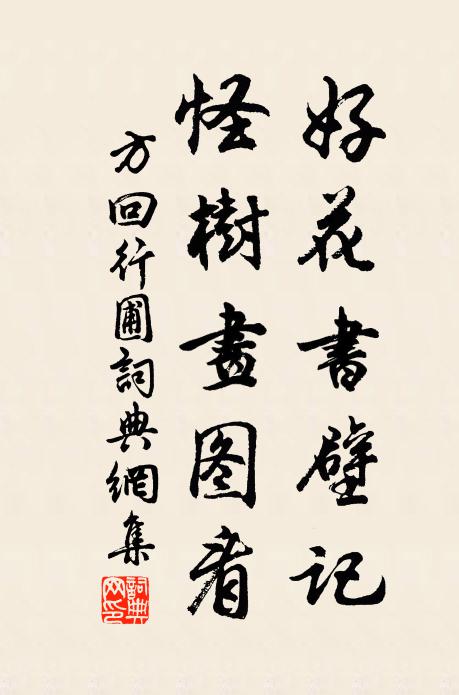 好花書壁記
怪樹畫图看
方回行圃詞典網集
詞典网印